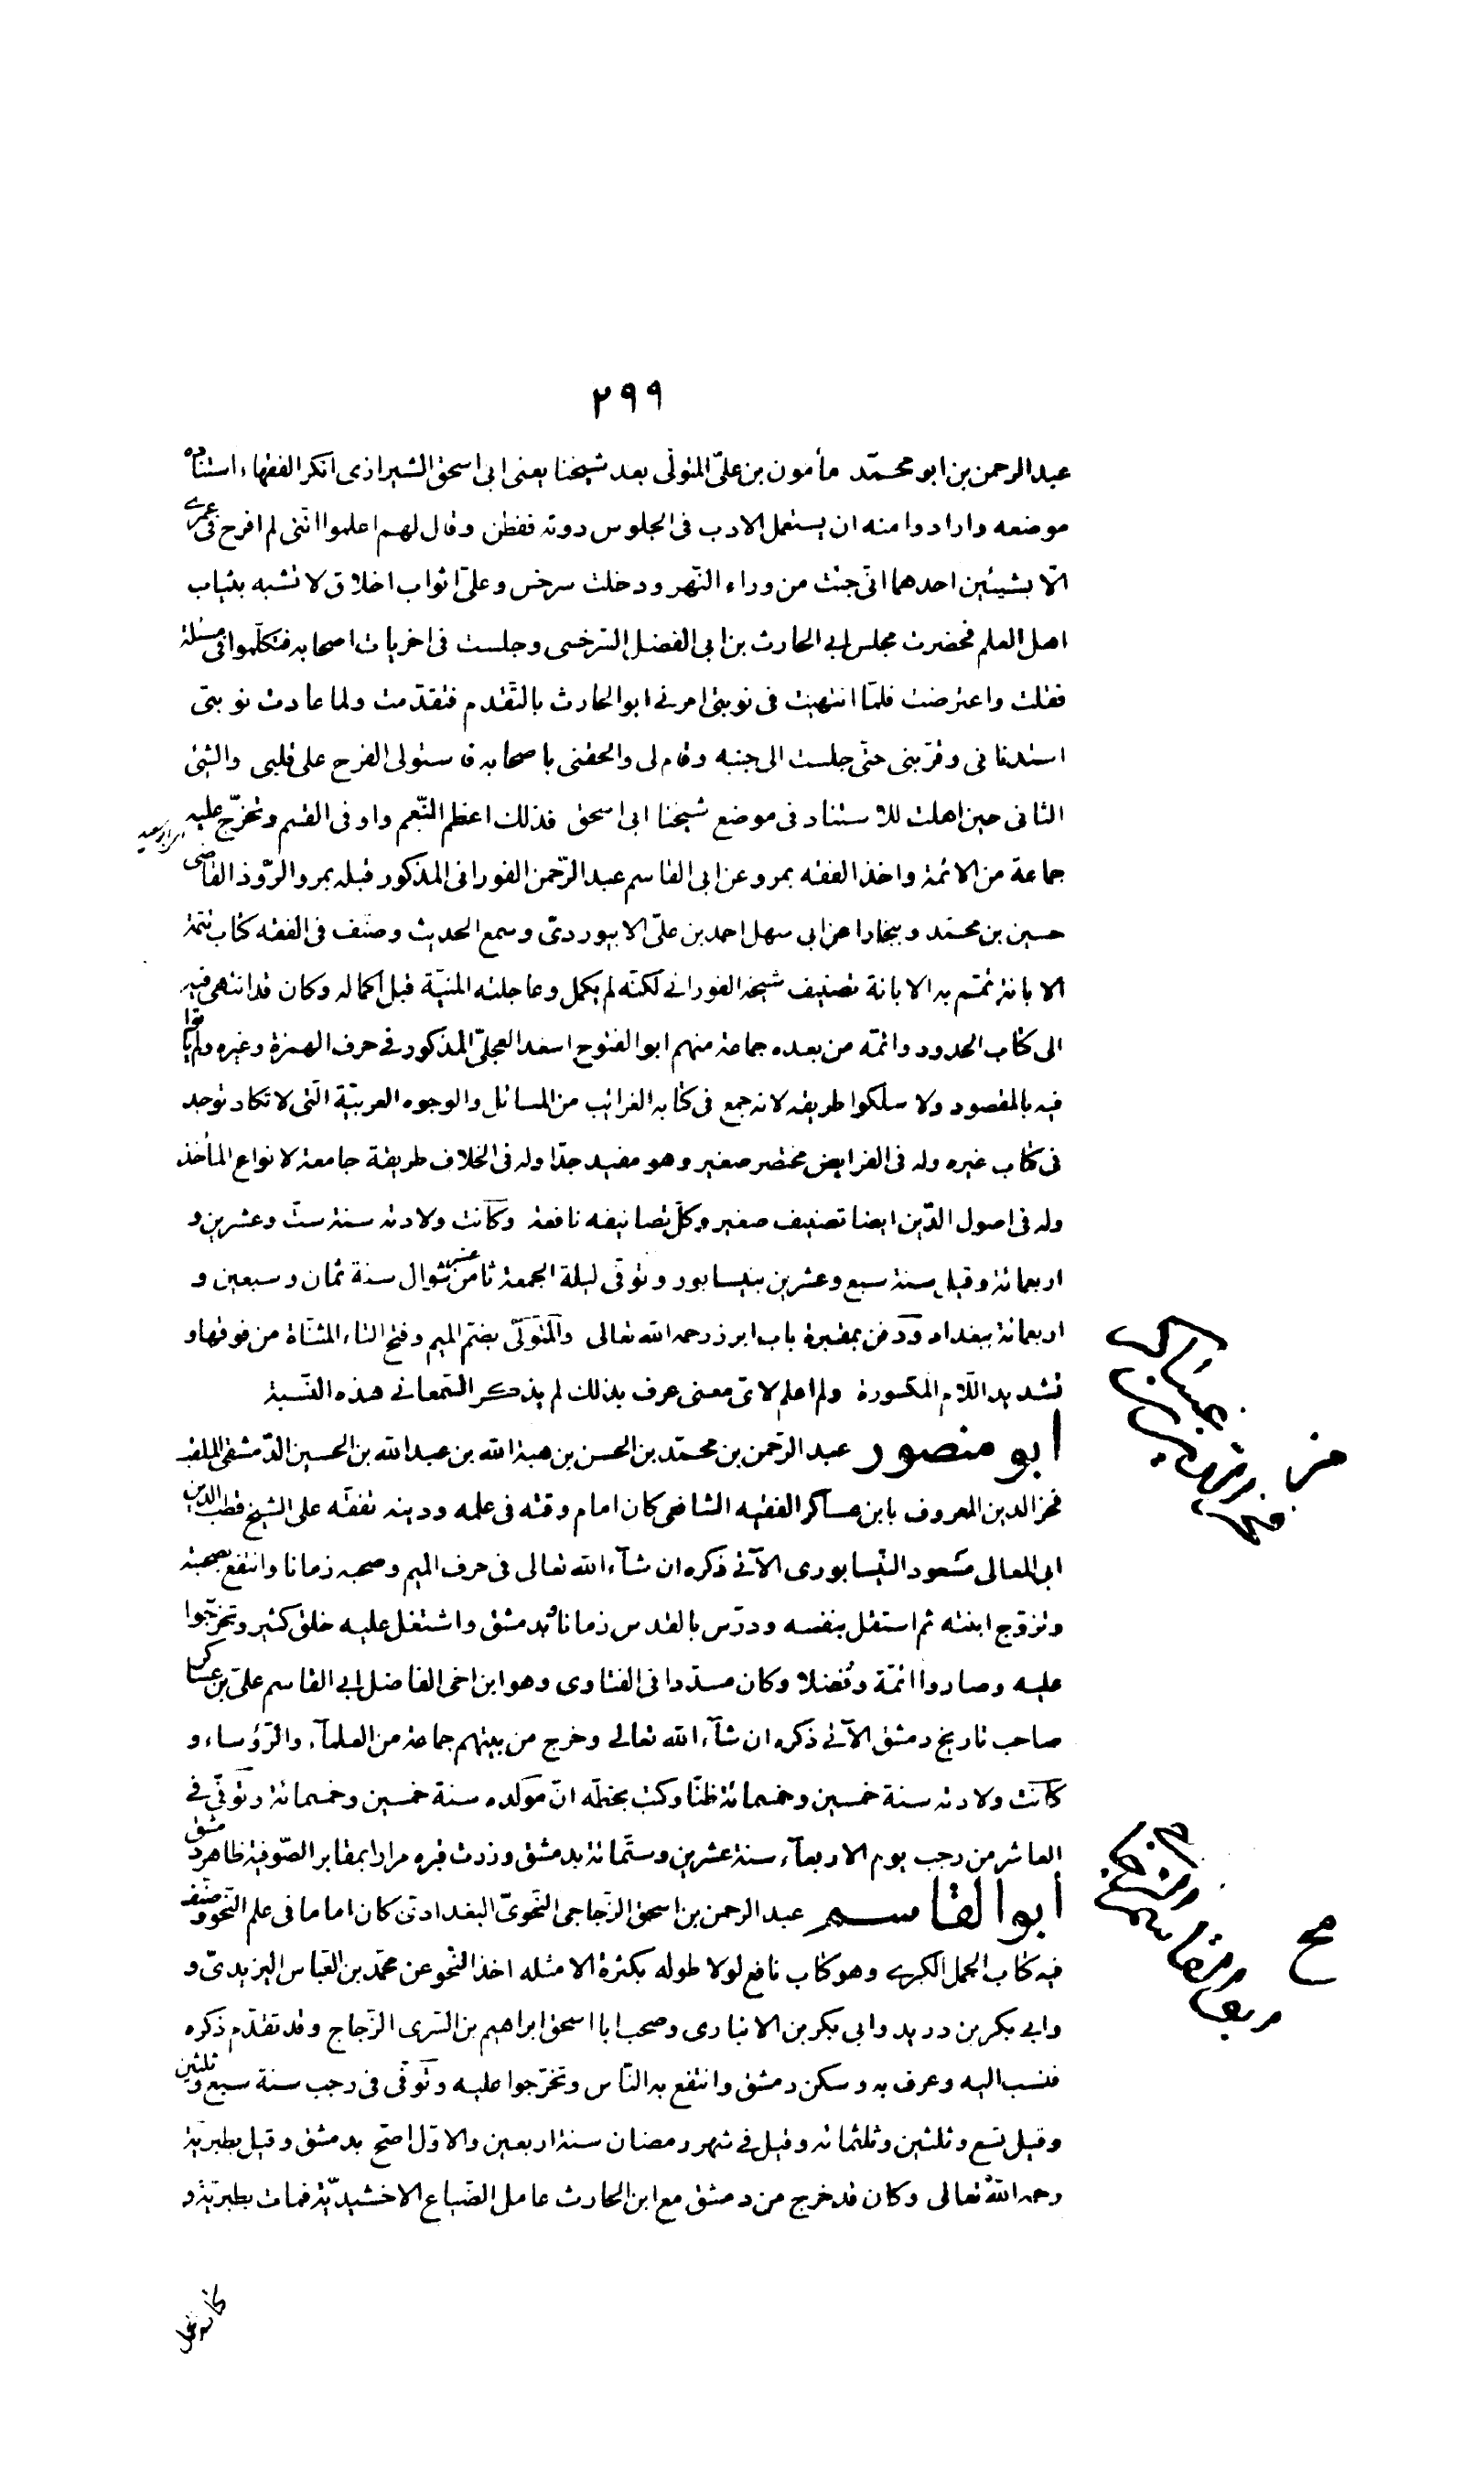 ٢٩٩
عبد الرحمن بن ابو محمّد مأمون بن علىّ المتولّى بعد شيخنا يعنى ابى اسحق الشيرازى انكر الفقهاء استناده
موضعه وارادوا منه ان يستعمل الادب فى الجلوس دونه ففطن وقال لهم اعلموا اننى لم افرح فى عمرى
الّا بشيئين احدهما انّى جئت من وراء النّهر ودخلت سرخس وعلىّ اثواب اخلاق لا تشبه بثياب
اهل العلم فحضرت مجلس ابى الحارث بن ابى الفضل السّرخسى وجلست فى اخريات اصحابه فتكلّموا فى مسئلة
فقلت واعترضت فلمّا انتهيت فى نوبتى امرنى ابو الحارث بالتّقدم فتقدّمت ولما عادت نوبتى
استدنانى وقرّبنى حتّى جلست الى جنبه وقام لى والحقنى باصحابه فاستولى الفرح على قلبى والشئ
الثانى حين اهلت للاستناد فى موضع شيخنا ابى اسحق فذلك اعظم النّعم واوفى القسم وتخرّج عليه
جماعة من الائمّة واخذ الفقه بمرو عن ابى القاسم عبد الرّحمن الفورانى المذكور قبله بمرو الرّوذ القاضى
حسين بن محمّد وببخارا عن ابى سهل احمد بن علىّ الابيوردىّ وسمع الحديث وصنّف فى الفقه كتاب تتمّة
الابانة تمّم به الابانة تصنيف شيخه الفورانى لكنّه لم يكمل وعاجلته المنيّة قبل اكماله وكان قد انتهى فيه
الى كتاب الحدود واتمّه من بعده جماعة منهم ابو الفتوح اسعد العجلىّ المذكور فى حرف الهمزة وغيره ولم ياتوا
فيه بالمقصود ولا سلكوا طريقه لانه جمع فى كتابه الغرائب من المسائل والوجوه الغريبة الّتى لا تكاد توجد
فى كتاب غيره وله فى الفرايض مختصر صغير وهو مفيد جدّا وله فى الخلاف طريقة جامعة لانواع المأخذ
وله فى اصول الدّين ايضا تصنيف صغير وكلّ تصانيفه نافعة وكانت ولادته سنة ستّ وعشرين و
اربعمائة وقيل سنة سبع وعشرين بنيسابور وتوفّى ليلة الجمعة ثامن عشر شوال سنة ثمان وسبعين و
اربعمائة ببغداد ودفن بمقبرة باب ابرز رحمه الله تعالى والمتولّى بضمّ الميم وفتح التاء المثنّاة من فوقها و
تشديد اللّام المكسورة ولم اعلم لاىّ معنى عرف بذلك لم يذكر السّمعانى هذه النّسبة
ابو منصور عبد الرّحمن بن محمّد بن الحسن بن هبة الله بن عبد الله بن الحسين الدّمشقى الملقب
فخر الدين المعروف بابن عساكر الفقيه الشافعى كان امام وقته فى علمه ودينه تفقّه على الشيخ قطب الدين
ابى المعالى مسعود النّيسابورى الآتى ذكره ان شآء الله تعالى فى حرف الميم وصحبه زمانا وانتفع بصحبته
وتزوّج ابنته ثم استقل بنفسه ودرّس بالقدس زمانا وبدمشق واشتغل عليه خلق كثير وتخرّجوا
عليه وصاروا ائمّة وفُضلا وكان مسدّدا فى الفتاوى وهو ابن اخى الفاضل ابى القاسم علىّ بن عساكر
صاحب تاريخ دمشق الآتى ذكره ان شآء الله تعالى وخرج من بيتهم جماعة من العلمآء والرّؤساء و
كانت ولادته سنة خمسين وخمسمائة ظنّا وكتب بخطّه انّ مولده سنة خمسين وخمسمائة وتوفّى فى
العاشر من رجب يوم الاربعآء سنة عشرين وستّمائة بدمشق وزرت قبره مرارا بمقابر الصّوفية ظاهر دمشق
أبو القاسم عبد الرحمن بن اسحق الزّجاجى النّحوىّ البغدادىّ كان اماما فى علم النّحو وصنّف
فيه كتاب الجمل الكبرى وهو كتاب نافع لولا طوله بكثرة الامثله اخذ النّحو عن محمّد بن العبّاس اليزيدىّ و
وابى بكر بن دريد وابى بكر بن الانبارى وصحب ابا اسحق ابراهيم بن السّرى الزّجاج وقد تقدّم ذكره
فنسب اليه وعرف به وسكن دمشق وانتفع به النّاس وتخرّجوا عليه وتوفّى فى رجب سنة سبع وثلثين
وقيل تسع وثلثين وثلثمائه وقيل فى شهر رمضان سنة اربعين والاوّل اصحّ بدمشق وقيل بطبريّة
رحمه الله تعالى وكان قد خرج من دمشق مع ابن الحارث عامل الضّياع الاخشيديّة فمات بطبريّة و